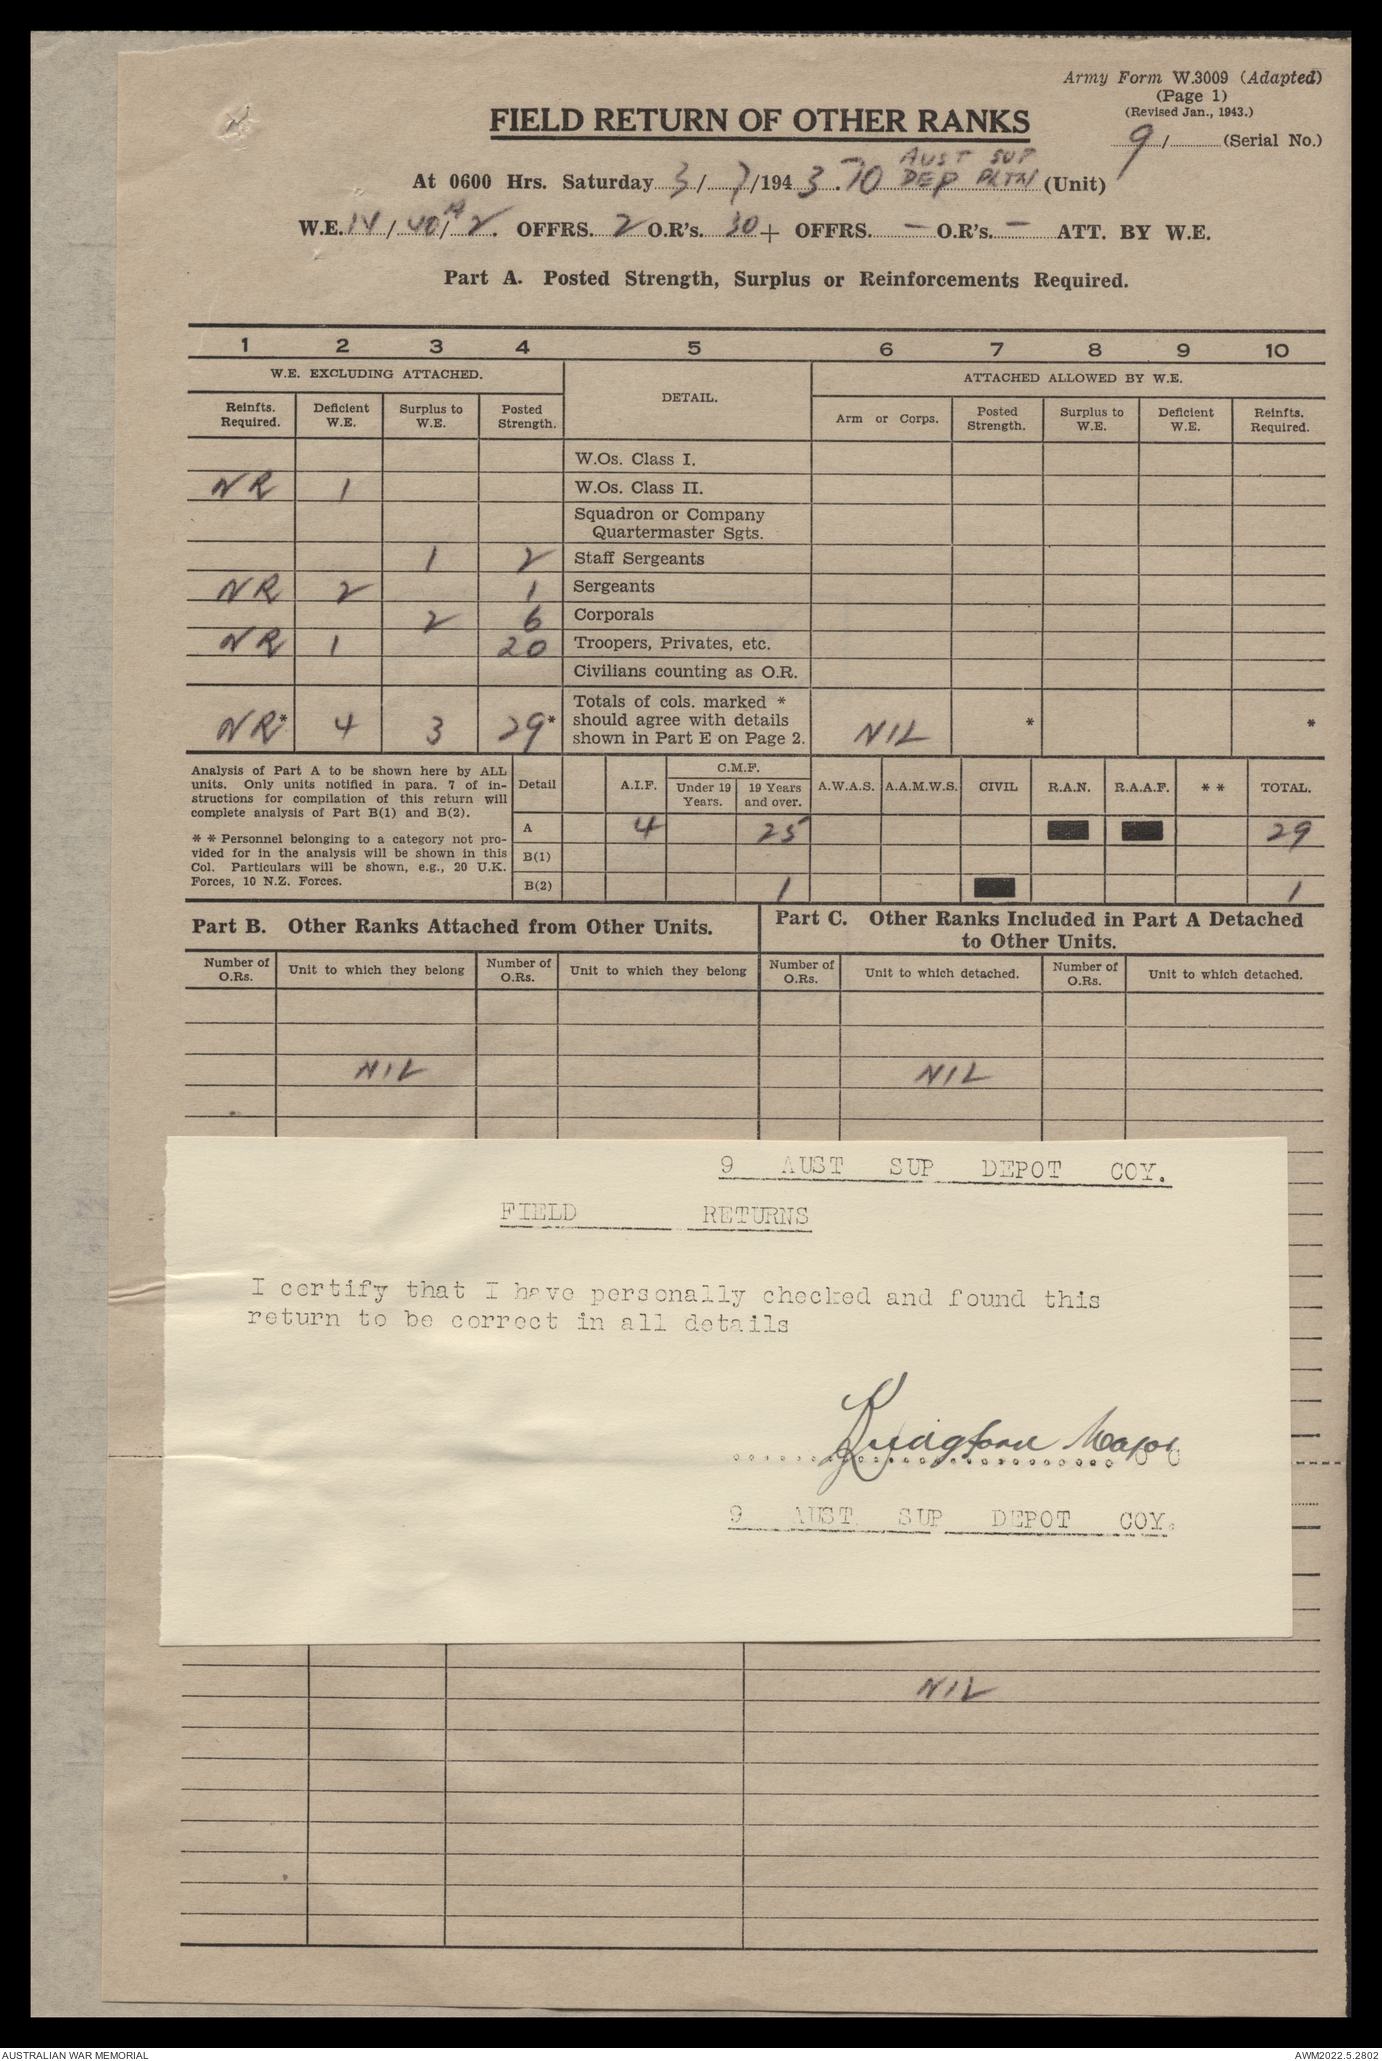 Army Form W.3009 (Adapted)
(Page 1)
(Revised Jan., 1943.)
FIELD RETURN OF OTHER RANKS
9/ (Serial No.)
At 0600 Hrs. Saturday 3/7/1943. 70 AUST SUP DEP PLTN (Unit)
W.E. 14/40A/2. OFFRS. 2 O.R's. 30 + OFFRS. — O.R's. — ATT. BY W.E.
Part A. Posted Strength, Surplus or Reinforcements Required.
1 2 3 4 5 6 7 8 9 10
W.E. EXCLUDING ATTACHED. DETAIL. ATTACHED ALLOWED BY W.E.
Reinfts. Required. Deficient W.E. Surplus to W.E. Posted Strength. Arm or Corps. Posted Strength. Surplus to W.E. Deficient W.E. Reinfts. Required.
W.Os. Class I.
NR 1 W.Os. Class II.
Squadron or Company
Quartermaster Sgts.
1 2 Staff Sergeants
NR 2 1 Sergeants
2 6 Corporals
NR 1 20 Troopers, Privates, etc.
Civilians counting as O.R.
Totals of cols. marked *
NR* 4 3 29* should agree with details NIL * *
shown in Part E on Page 2.
Analysis of Part A to be shown here by ALL
units. Only units notified in para. 7 of in-
structions for compilation of this return will
complete analysis of Part B(1) and B(2).
** Personnel belonging to a category not pro-
vided for in the analysis will be shown in this
Col. Particulars will be shown, e.g., 20 U.K.
Forces, 10 N.Z. Forces.
C.M.F.
Detail A.I.F. Under 19 Years. 19 Years and over. A.W.A.S. A.A.M.W.S. CIVIL R.A.N. R.A.A.F. ** TOTAL.
A 4 25 29
B(1)
B(2) 1 1
Part B. Other Ranks Attached from Other Units.
Part C. Other Ranks Included in Part A Detached
to Other Units.
Number of O.Rs. Unit to which they belong Number of O.Rs. Unit to which they belong Number of O.Rs. Unit to which detached. Number of O.Rs. Unit to which detached.
NIL NIL
9 AUST SUP DEPOT COY.
FIELD RETURNS
I certify that I have personally checked and found this
return to be correct in all details
Major
9 AUST SUP DEPOT COY.
NIL
AUSTRALIAN WAR MEMORIAL
AWM2022.5.2802